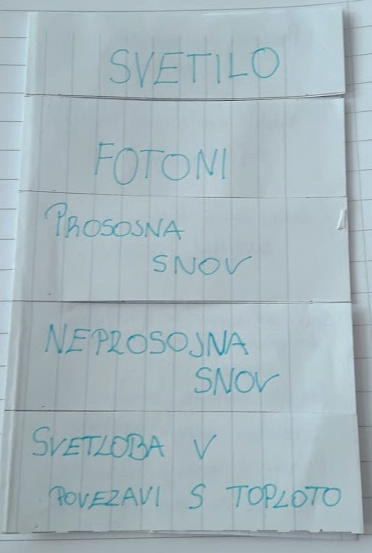 SVETILO
FOTONI
PROSOJNA
SNOV
NEPROSOJNA
SNOV
SVETLOBA V
POVEZAVI S TOPLOTO